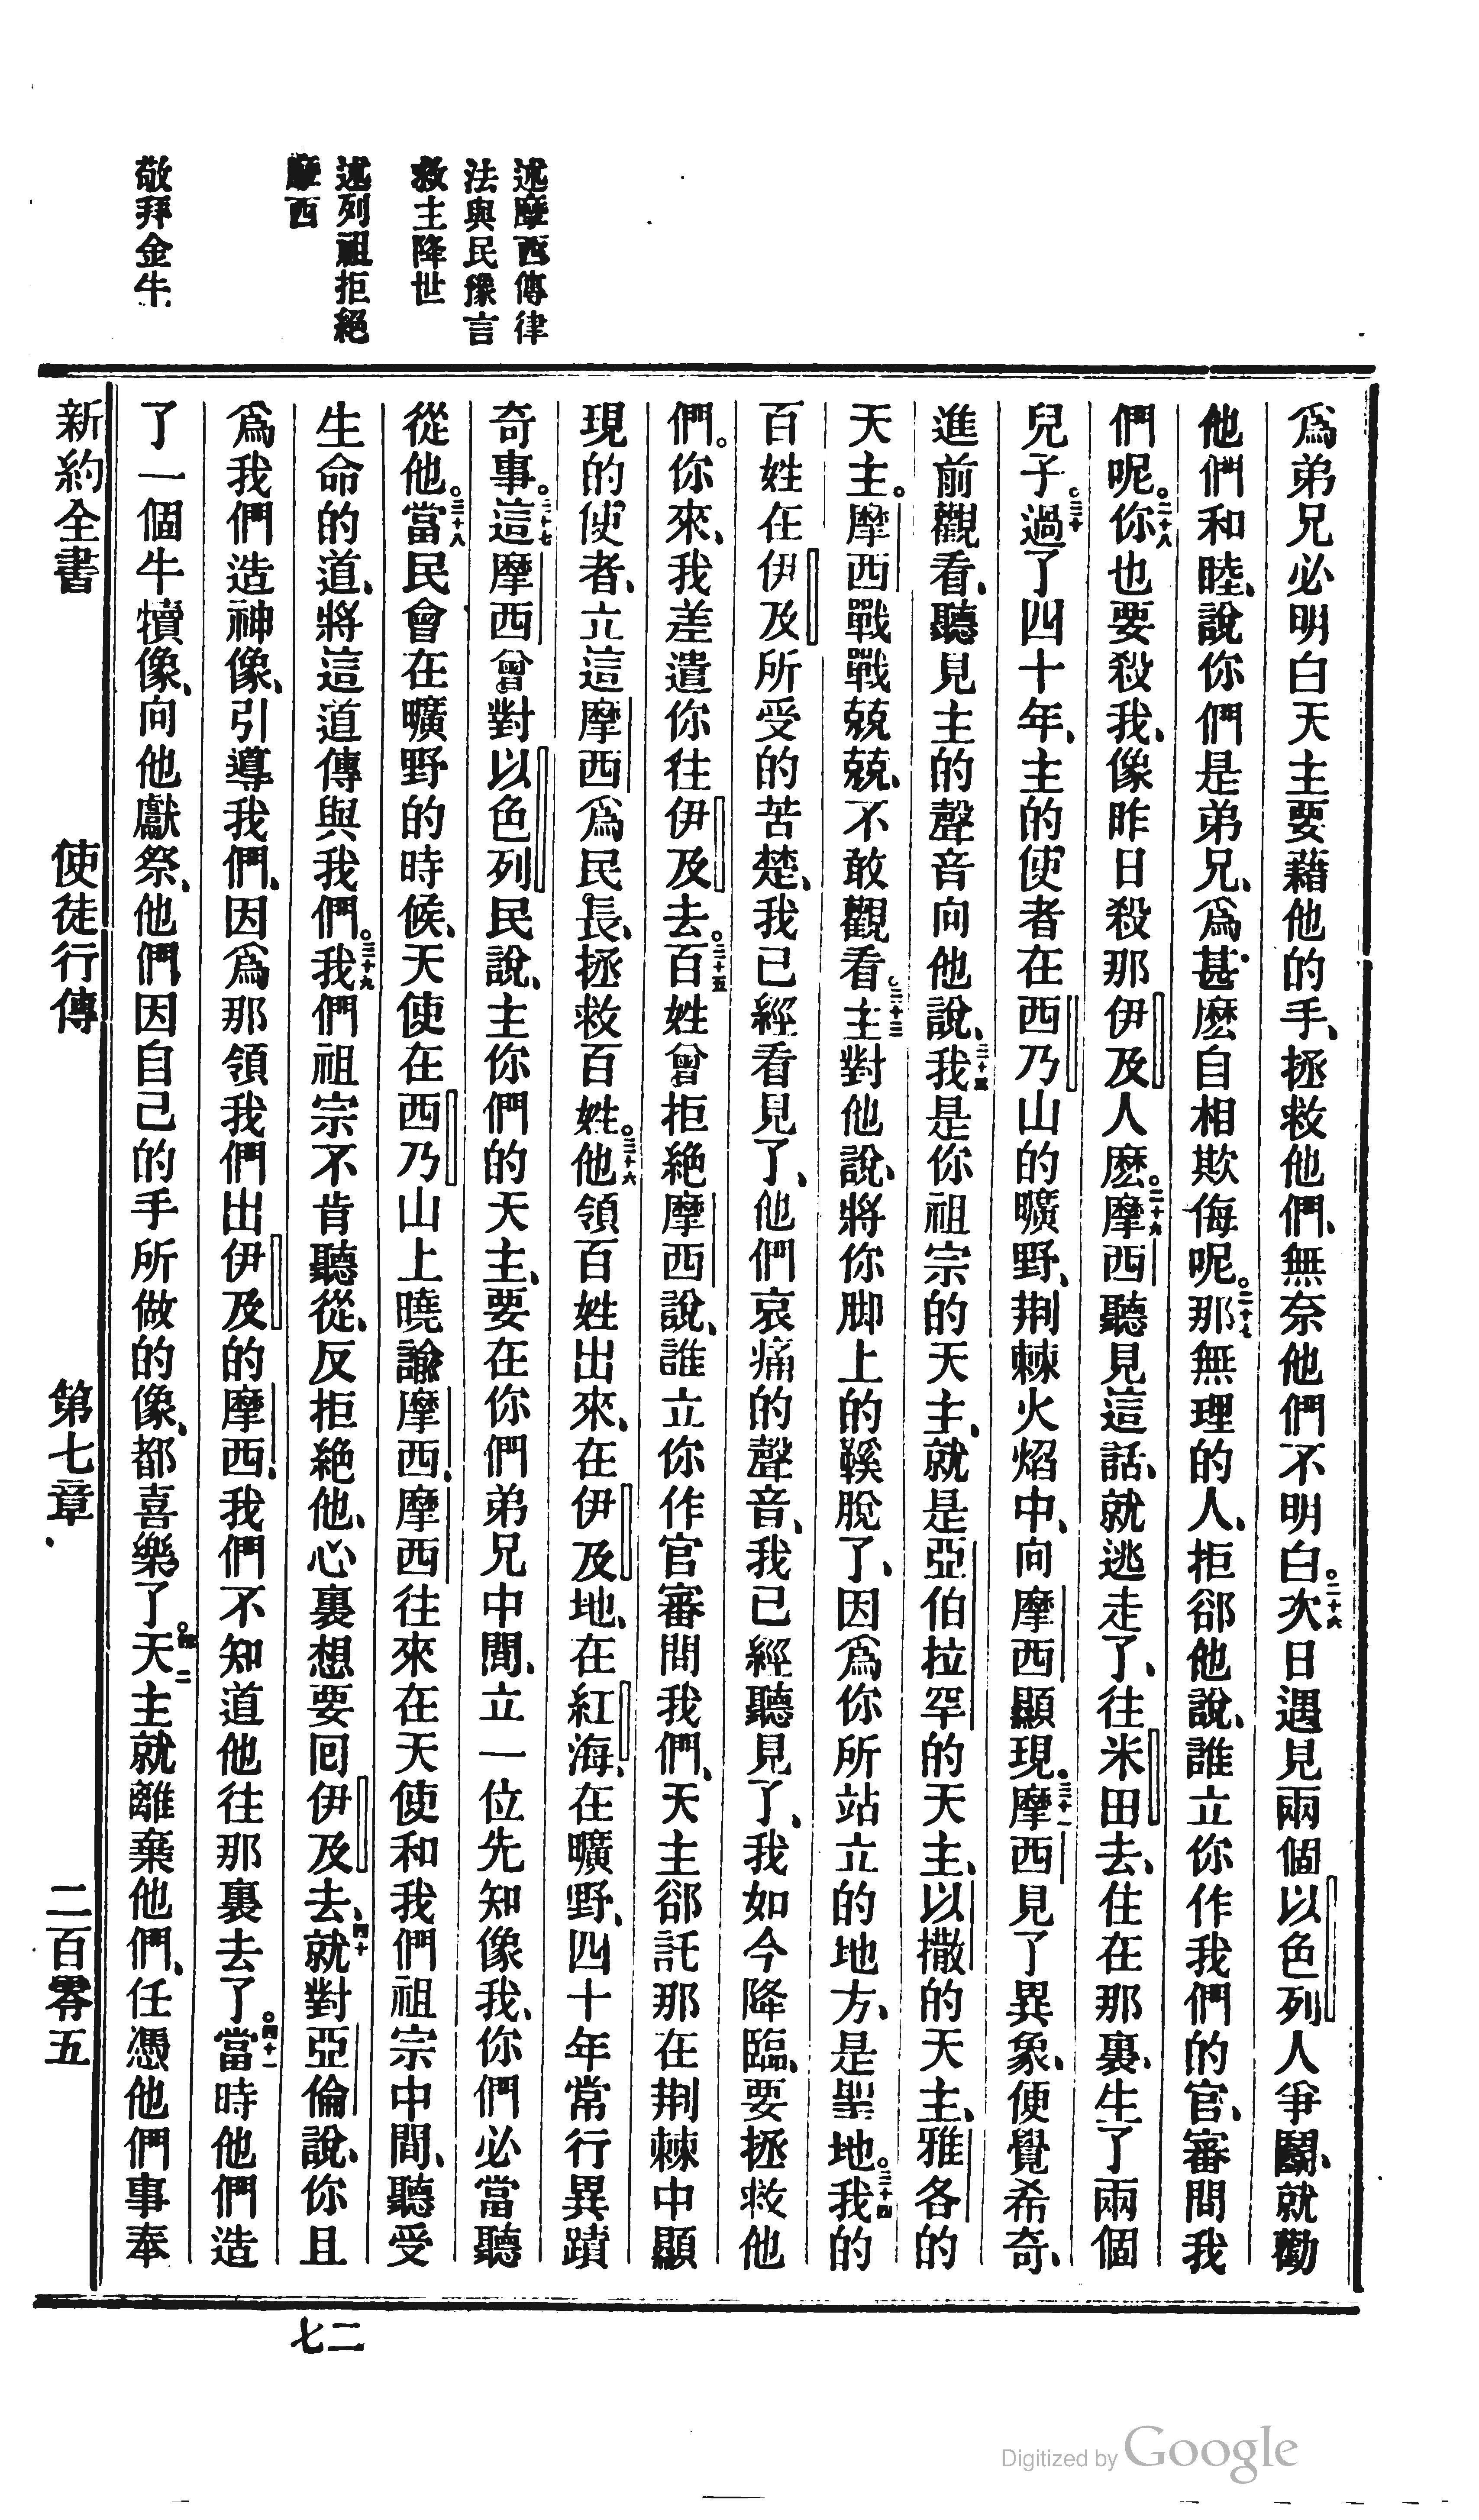 述摩西傳律
法與民豫言
救主降世
述列祖拒絕
摩西
敬拜金牛
爲弟兄必明白天主要藉他的手、拯救他們、無奈他們不明白。二十六次日遇見兩個以色列人爭鬭、就勸
他們和睦、說你們是弟兄、爲甚麼自相欺侮呢。二十七那無理的人、拒郤他說、誰立你作我們的官、審問我
們呢。二十八你也要殺我、像昨日殺那伊及人麼。二十九摩西聽見這話、就逃走了、往米田去、住在那裏、生了兩個
兒子。三十過了四十年、主的使者在西乃山的曠野、荆棘火焰中、向摩西顯現。三十一摩西見了異象、便覺希奇、
進前觀看、聽見主的聲音向他說、三十二我是你祖宗的天主、就是亞伯拉罕的天主、以撒的天主、雅各的
天主。摩西戰戰兢兢、不敢觀看。三十三主對他說、將你脚上的鞵脫了、因爲你所站立的地方、是聖地。三十四我的
百姓在伊及所受的苦楚、我已經看見了、他們哀痛的聲音、我已經聽見了、我如今降臨、要拯救他
們。你來、我差遣你往伊及去。三十五百姓曾拒絕摩西說、誰立你作官審問我們、天主郤託那在荆棘中顯
現的使者、立這摩西爲民長、拯救百姓。三十六他領百姓出來、在伊及地、在紅海、在曠野、四十年常行異蹟
奇事。三十七這摩西曾對以色列民說、主你們的天主、要在你們弟兄中間、立一位先知像我、你們必當聽
從他。三十八當民會在曠野的時候、天使在西乃山上曉諭摩西、摩西往來在天使和我們祖宗中間、聽受
生命的道、將這道傳與我們。三十九我們祖宗不肯聽從、反拒絕他、心裏想要囘伊及去、四十就對亞倫說、你且
爲我們造神像、引導我們、因爲那領我們出伊及的摩西、我們不知道他往那裏去了。四十一當時他們造
了一個牛犢像、向他獻祭、他們因自己的手所做的像、都喜樂了。四十二天主就離棄他們、任憑他們事奉
新約全書 使徒行傳 第七章 二百零五
七二
Digitized by Google